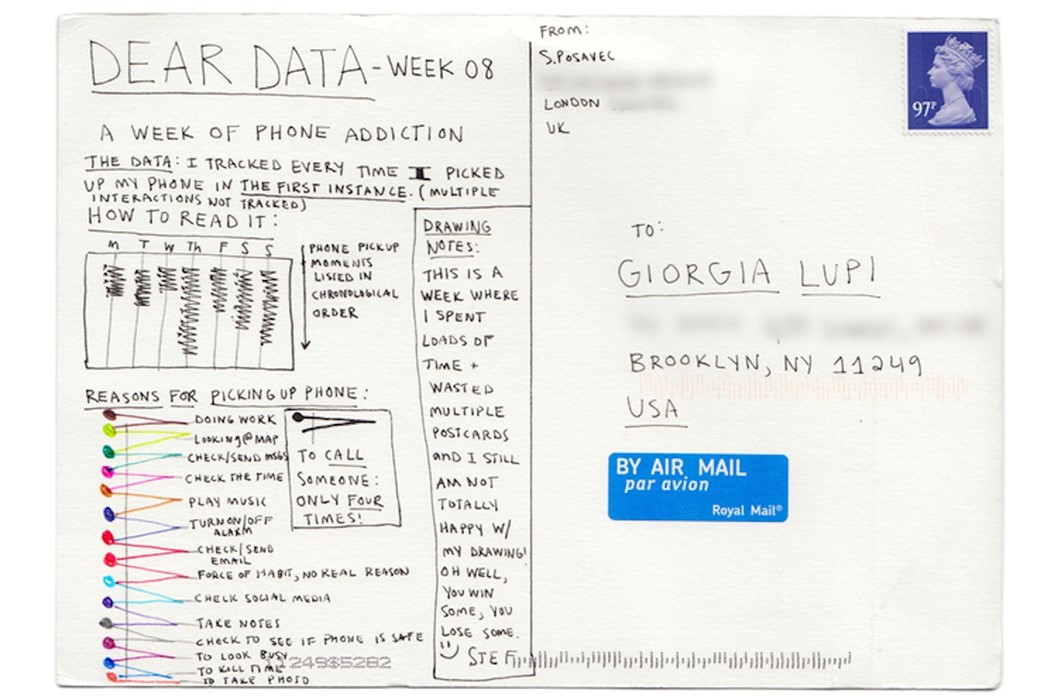 DEAR DATA - WEEK 08
A WEEK OF PHONE ADDICTION
THE DATA: I TRACKED EVERY TIME I PICKED
UP MY PHONE IN THE FIRST INSTANCE. (MULTIPLE
INTERACTIONS NOT TRACKED)
HOW TO READ IT:
M T W Th F S S
PHONE PICKUP
MOMENTS
LISTED IN
CHRONOLOGICAL
ORDER
REASONS FOR PICKING UP PHONE:
DOING WORK
LOOKING@MAP
CHECK/SEND MSGS
CHECK THE TIME
PLAY MUSIC
TURN ON/OFF
ALARM
CHECK/SEND
EMAIL
FORCE OF HABIT, NO REAL REASON
CHECK SOCIAL MEDIA
TAKE NOTES
CHECK TO SEE IF PHONE IS SAFE
TO LOOK BUSY
TO KILL TIME
TO TAKE PHOTO
11249$5282
TO CALL
SOMEONE:
ONLY FOUR
TIMES!
DRAWING
NOTES:
THIS IS A
WEEK WHERE
I SPENT
LOADS OF
TIME +
WASTED
MULTIPLE
POSTCARDS
and I STILL
AM NOT
TOTALLY
HAPPY W/
MY DRAWING!
OH WELL,
YOU WIN
SOME, YOU
LOSE SOME.
STEF
FROM:
S.POSAVEC
LONDON
UK
97P
TO:
GIORGIA LUPI
BROOKLYN, NY 11249
USA
BY AIR MAIL
par avion
Royal Mail®